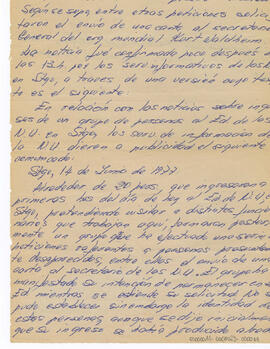 Según se supo, entre otras peticiones solici
taron el envío de una carta al secretario
General del org. mundial Kurt Waldheim
La noticia fué confirmada poco después de
las 13h, por los serv. informativos de la
en Stgo, a traves de una versión cuyo tex-
to es el siguiente:
En relación con las noticias sobre ingre
ses de un grupo de personas al Ed. de las
N.U. en Stgo, los serv. de información de
la N.U. dieron a publicidad el siguiente
comunicado:
Stgo, 14 de Junio de 1977.
Alrededor de 20 pers, que ingresaron a
primeras hrs del día de hoy al Ed. de N.U,
Stgo, pretendiendo visitar a distintos funcio
narios que trabajan aquí, formaron posterior
mente un grupo que ha efectuado una serie
peticiones referentes a personas presuntamen
te desaparecidas, entre ellas el envío de una
carta al secretario de las N.U. El grupo ha
manifestado su intención de permanecer en
Ed. mientras se atiende su solicitud. No
pudo establecer sin embargo la identidad de
estas personas, aunque se dijo inicialmente
que su ingreso se había producido a hora